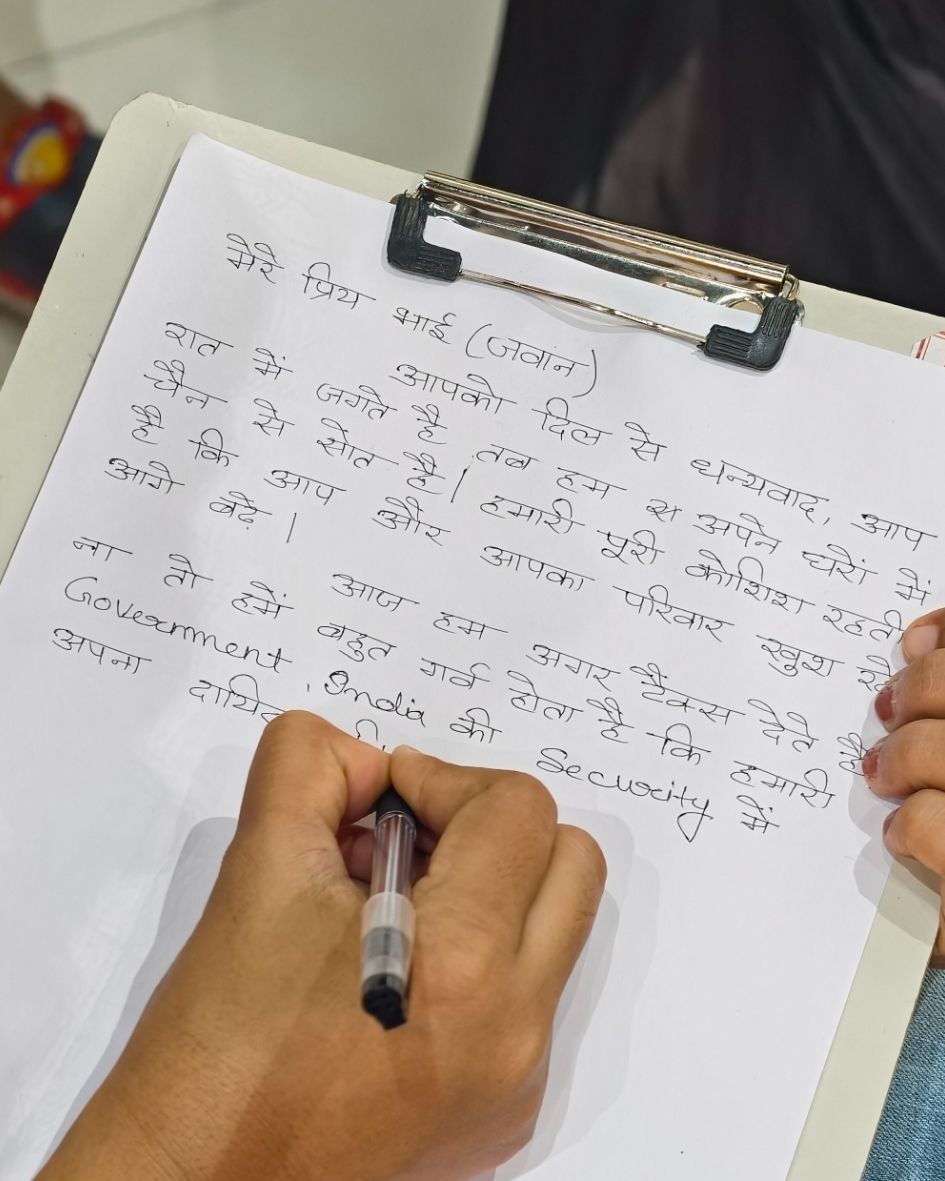 मेरे प्रिय भाई (जवान)
आपको दिल से धन्यवाद, आप
रात में जगते है तब हम अपने घरों में
चैन से सोत है। हमारी पूरी कोशिश रहती
है कि आप और आपका परिवार खुश रहे
आगे बढ़े।
आज हम अगर टैक्स देते है
ना तो हमें बहुत गर्व होता है कि हमारी
Government, India की Security में
अपना